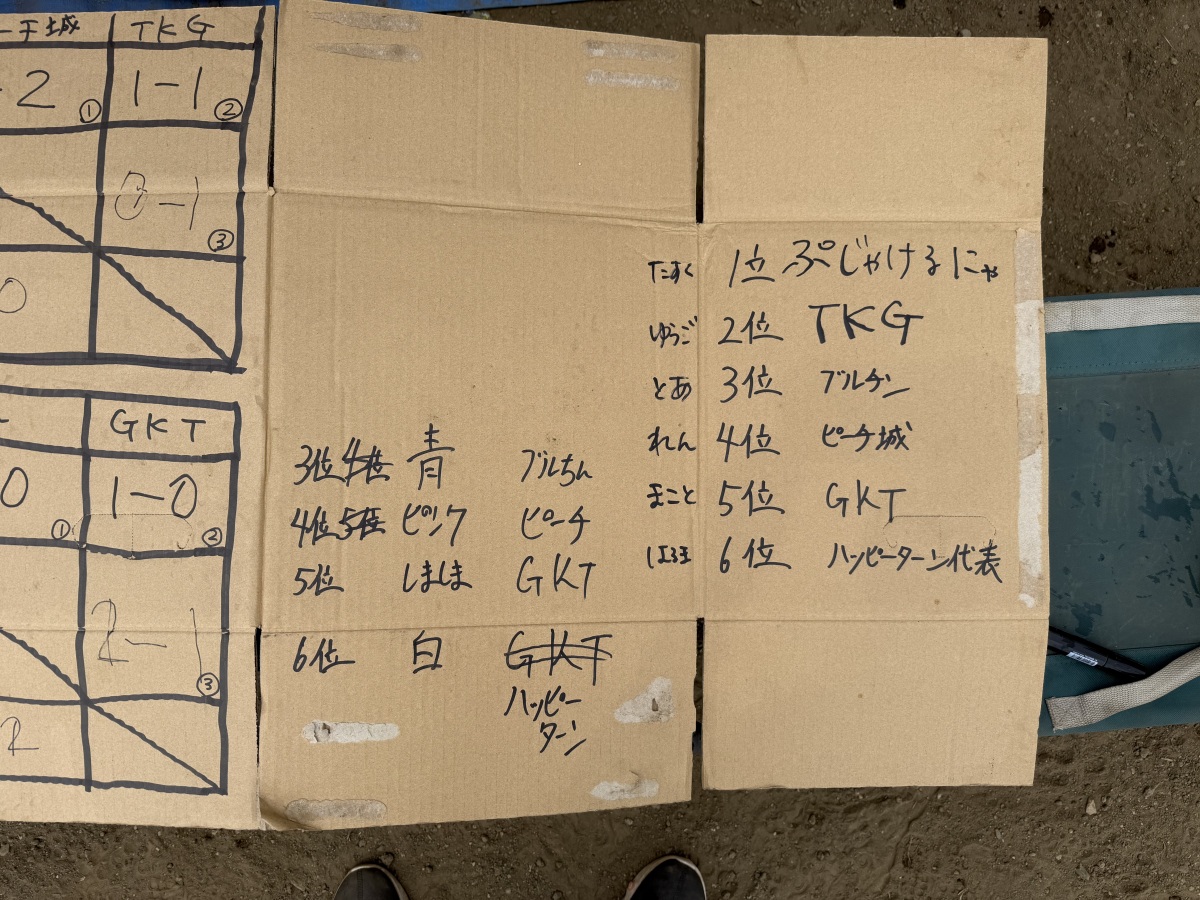 ーチ城 TKG
-2 ① 1-1 ②
0-1 ③
0
GKT
0 ① 1-0 ②
2-1 ③
2
3位 4位 青 ブルちん
4位 5位 ピンク ピーチ
5位 しましま GKT
6位 白 GKT
ハッピー
ターン
たすく 1位 ぷじゃけるにゃ
ゆうご 2位 TKG
とあ 3位 ブルチン
れん 4位 ピーチ城
まこと 5位 GKT
6位 ハッピーターン代表